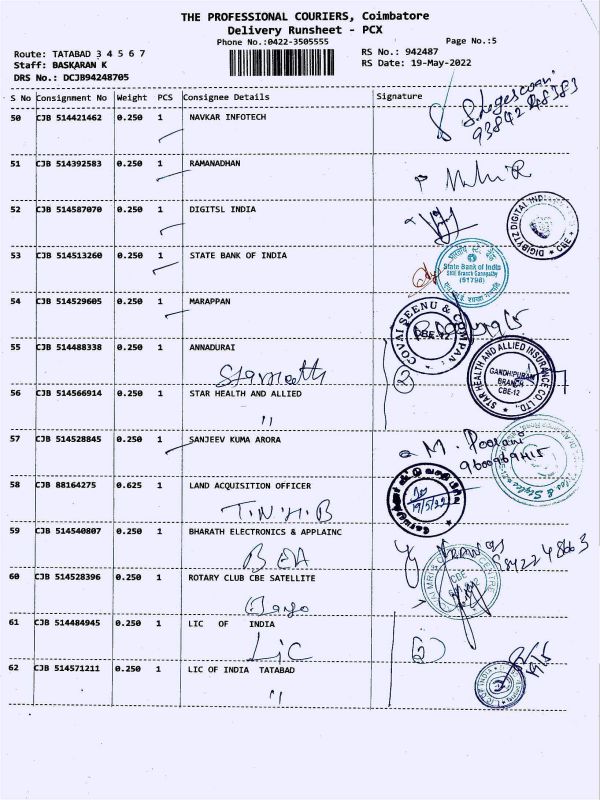 THE PROFESSIONAL COURIERS, Coimbatore
Delivery Runsheet - PCX
Phone No.:0422-3505555
Page No.:5
Route: TATABAD 3 4 5 6 7
RS No.: 942487
Staff: BASKARAN K
RS Date: 19-May-2022
DRS No.: DCJB94248705
S No Consignment No Weight PCS Consignee Details Signature
50 CJB 514421462 0.250 1 NAVKAR INFOTECH
51 CJB 514392583 0.250 1 RAMANADHAN
52 CJB 514587070 0.250 1 DIGITSL INDIA
DIGIBYTZ DIGITAL
CBE
53 CJB 514513260 0.250 1 STATE BANK OF INDIA
State Bank of India
SME Branch Ganapathy
(51798)
54 CJB 514529605 0.250 1 MARAPPAN
COVAI SEENU & COMPANY
CBE-12
55 CJB 514488338 0.250 1 ANNADURAI
STAR HEALTH AND ALLIED INSURANCE CO.LTD.
GANDHIPURAM
BRANCH
CBE-12
56 CJB 514566914 0.250 1 STAR HEALTH AND ALLIED
"
57 CJB 514528845 0.250 1 SANJEEV KUMA ARORA
58 CJB 88164275 0.625 1 LAND ACQUISITION OFFICER
T.N.H.B
19/5/22
59 CJB 514540807 0.250 1 BHARATH ELECTRONICS & APPLAINC
BEA
60 CJB 514528396 0.250 1 ROTARY CLUB CBE SATELLITE
61 CJB 514484945 0.250 1 LIC OF INDIA
LIC
62 CJB 514571211 0.250 1 LIC OF INDIA TATABAD
"